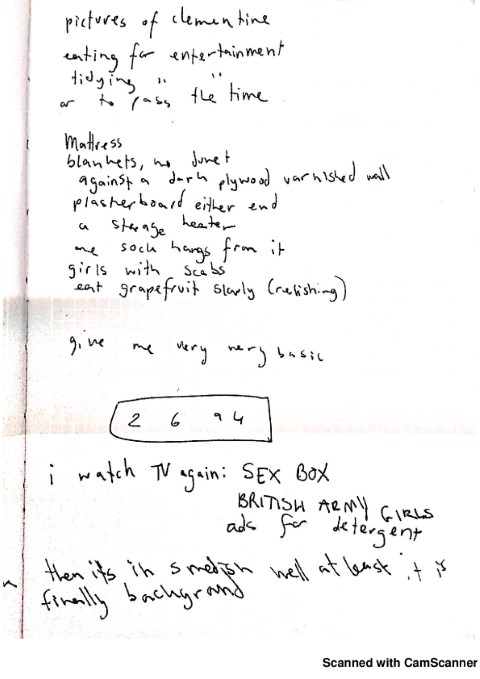 pictures of clementine
eating for entertainment
tidying " "
or to pass the time
Mattress
blankets, no duvet
against a dark plywood varnished wall
plasterboard either end
a storage heater
one sock hangs from it
girls with scabs
eat grapefruit slowly (relishing)
give me very very basic
2 6 9 4
i watch TV again: SEX BOX
BRITISH ARMY GIRLS
ads for detergent
then its in swedish well at least it is
finally background
Scanned with CamScanner